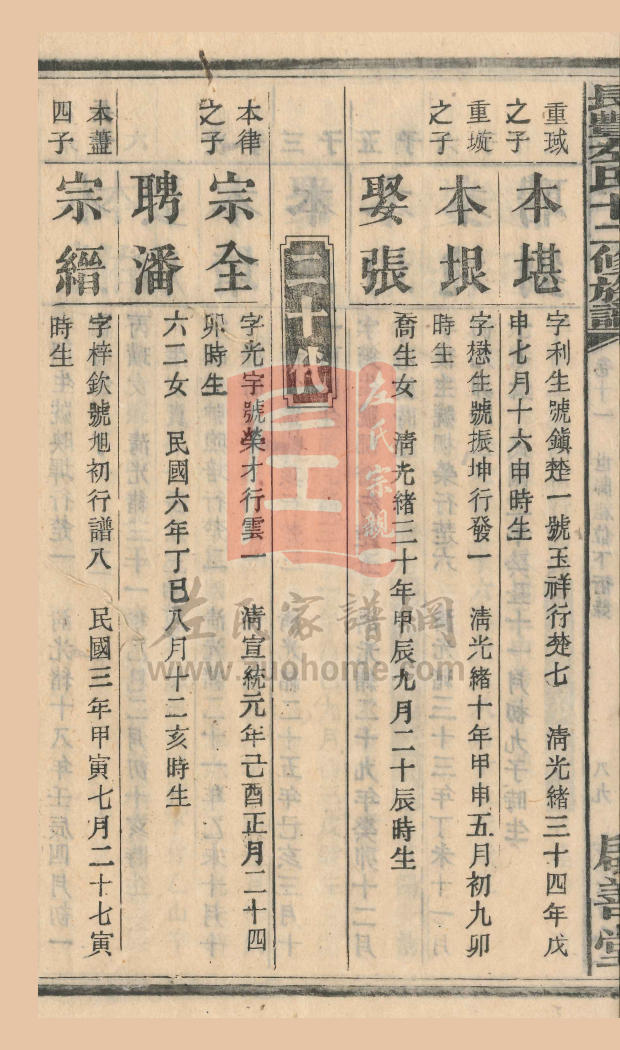 長豐左氏十二修族譜
卷十一
八九
重琙之子
本堪
字利生號鎮楚一號玉祥行楚七 清光緒三十四年戊
申七月十六申時生
重璇之子
本垠
字懋生號振坤行發一 清光緒十年甲申五月初九卯
時生
娶張
喬生女 清光緒三十年甲辰九月二十辰時生
二十代
本律之子
宗全
字光宇號榮才行雲一 清宣統元年己酉正月二十四
卯時生
聘潘
六二女 民國六年丁巳八月十二亥時生
本藎四子
宗縉
字梓欽號旭初行譜八 民國三年甲寅七月二十七寅
時生
左氏宗親
左氏家譜網
www.zuohome.com